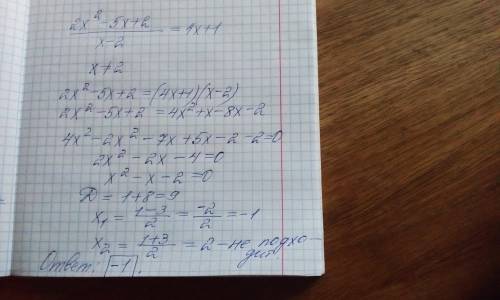 (2x²-5x+2)/(x-2) = 4x+1
x≠2
2x²-5x+2=(4x+1)(x-2)
2x²-5x+2=4x²+x-8x-2
4x²-2x²-7x+5x-2-2=0
2x²-2x-4=0
x²-x-2=0
D=1+8=9
x₁=(1-3)/2=-2/2=-1
x₂=(1+3)/2=2-не подходит
Ответ: -1.